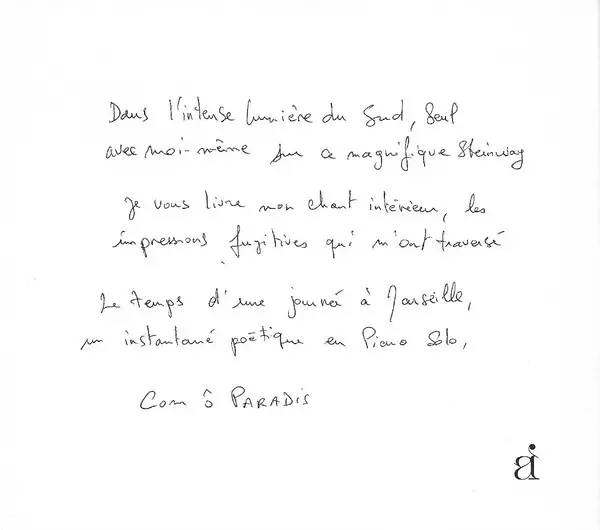 Dans l'intense lumière du Sud, Seul
avec moi-même sur ce magnifique Steinway
Je vous livre mon chant intérieur, les
impressions fugitives qui m'ont traversé
Le temps d'une journée à Marseille,
un instantané poëtique en Piano Solo,
Com ô PARADIS